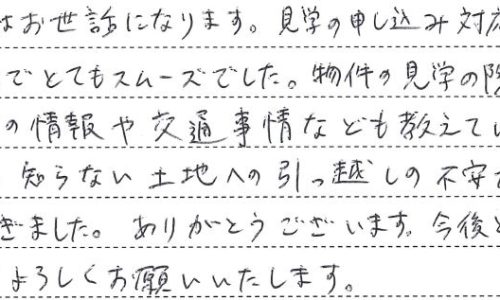 はお世話になります。見学の申し込み対応
でとてもスムーズでした。物件の見学の際
の情報や交通事情なども教えてい
知らない土地への引っ越しの不安が
ぎました。ありがとうございます。今後と
よろしくお願いいたします。